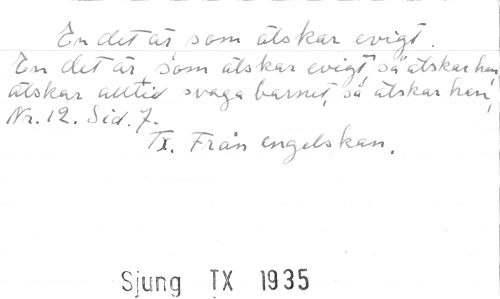 En det är som älskar evigt.
En det är, som älskar evigt, så älskar han,
älskar alltid svaga barnet, så älskar han,
Nr. 12. Sid. 7.
Tx. Från engelskan.
Sjung TX 1935